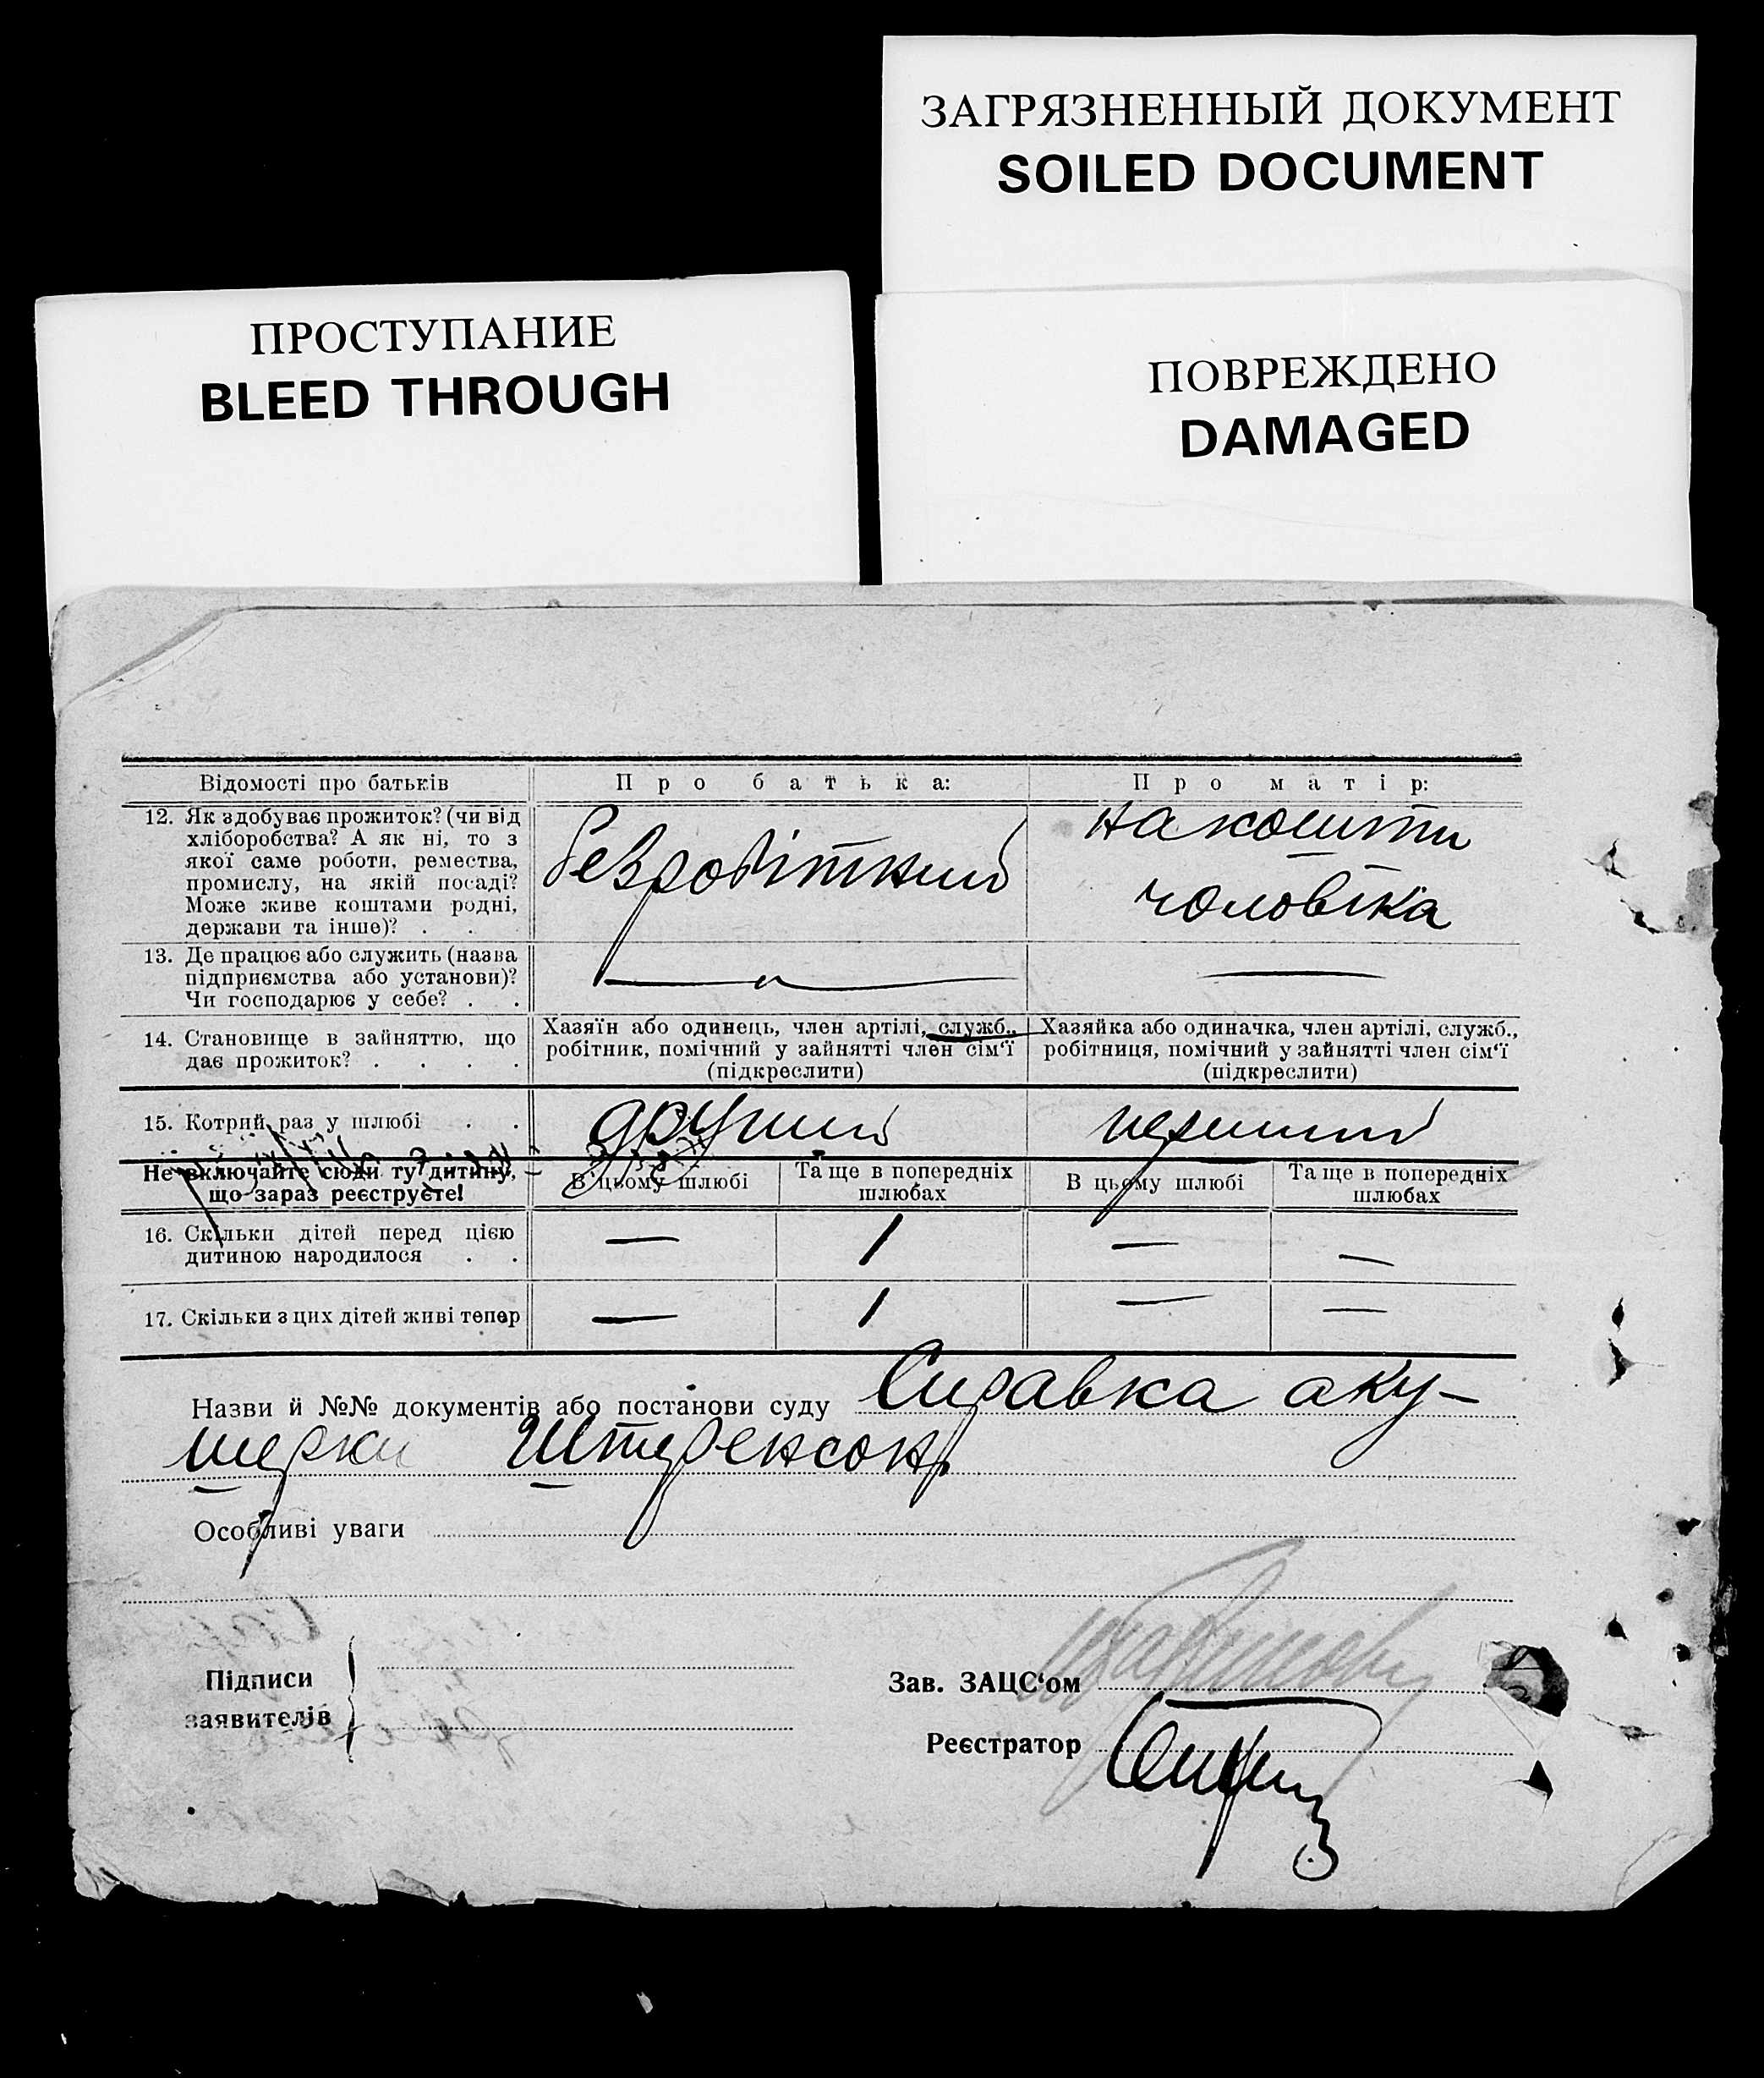 ЗАГРЯЗНЕННЫЙ ДОКУМЕНТ
SOILED DOCUMENT
ПРОСТУПАНИЕ
BLEED THROUGH
ПОВРЕЖДЕНО
DAMAGED
Відомості про батьків
Про батька:
Про матір:
12. Як здобуває прожиток? (чи від
хліборобства? А як ні, то з
якої саме роботи, ремества,
промислу, на якій посаді?
Може живе коштами родні,
держави та інше)? . .
безробітний
на кошти
чоловіка
13. Де працює або служить (назва
підприємства або установи)?
Чи господарює у себе? . .
—
—
14. Становище в зайняттю, що
дає прожиток? . . . .
Хазяїн або одинець, член артілі, служб.,
робітник, помічний у зайнятті член сім'ї
(підкреслити)
Хазяйка або одиначка, член артілі, служб.,
робітниця, помічний у зайнятті член сім'ї
(підкреслити)
15. Котрий раз у шлюбі . .
другий
перший
Не включайте сюди ту дитину,
що зараз реєструєте!
В цьому шлюбі
Та ще в попередніх
шлюбах
В цьому шлюбі
Та ще в попередніх
шлюбах
16. Скільки дітей перед цією
дитиною народилося . .
— 1 — —
17. Скільки з цих дітей живі тепер
— 1 — —
Назви й №№ документів або постанови суду Справка аку-
шерки Штеренсон
Особливі уваги
Підписи
заявителів
Зав. ЗАЦС'ом
Реєстратор